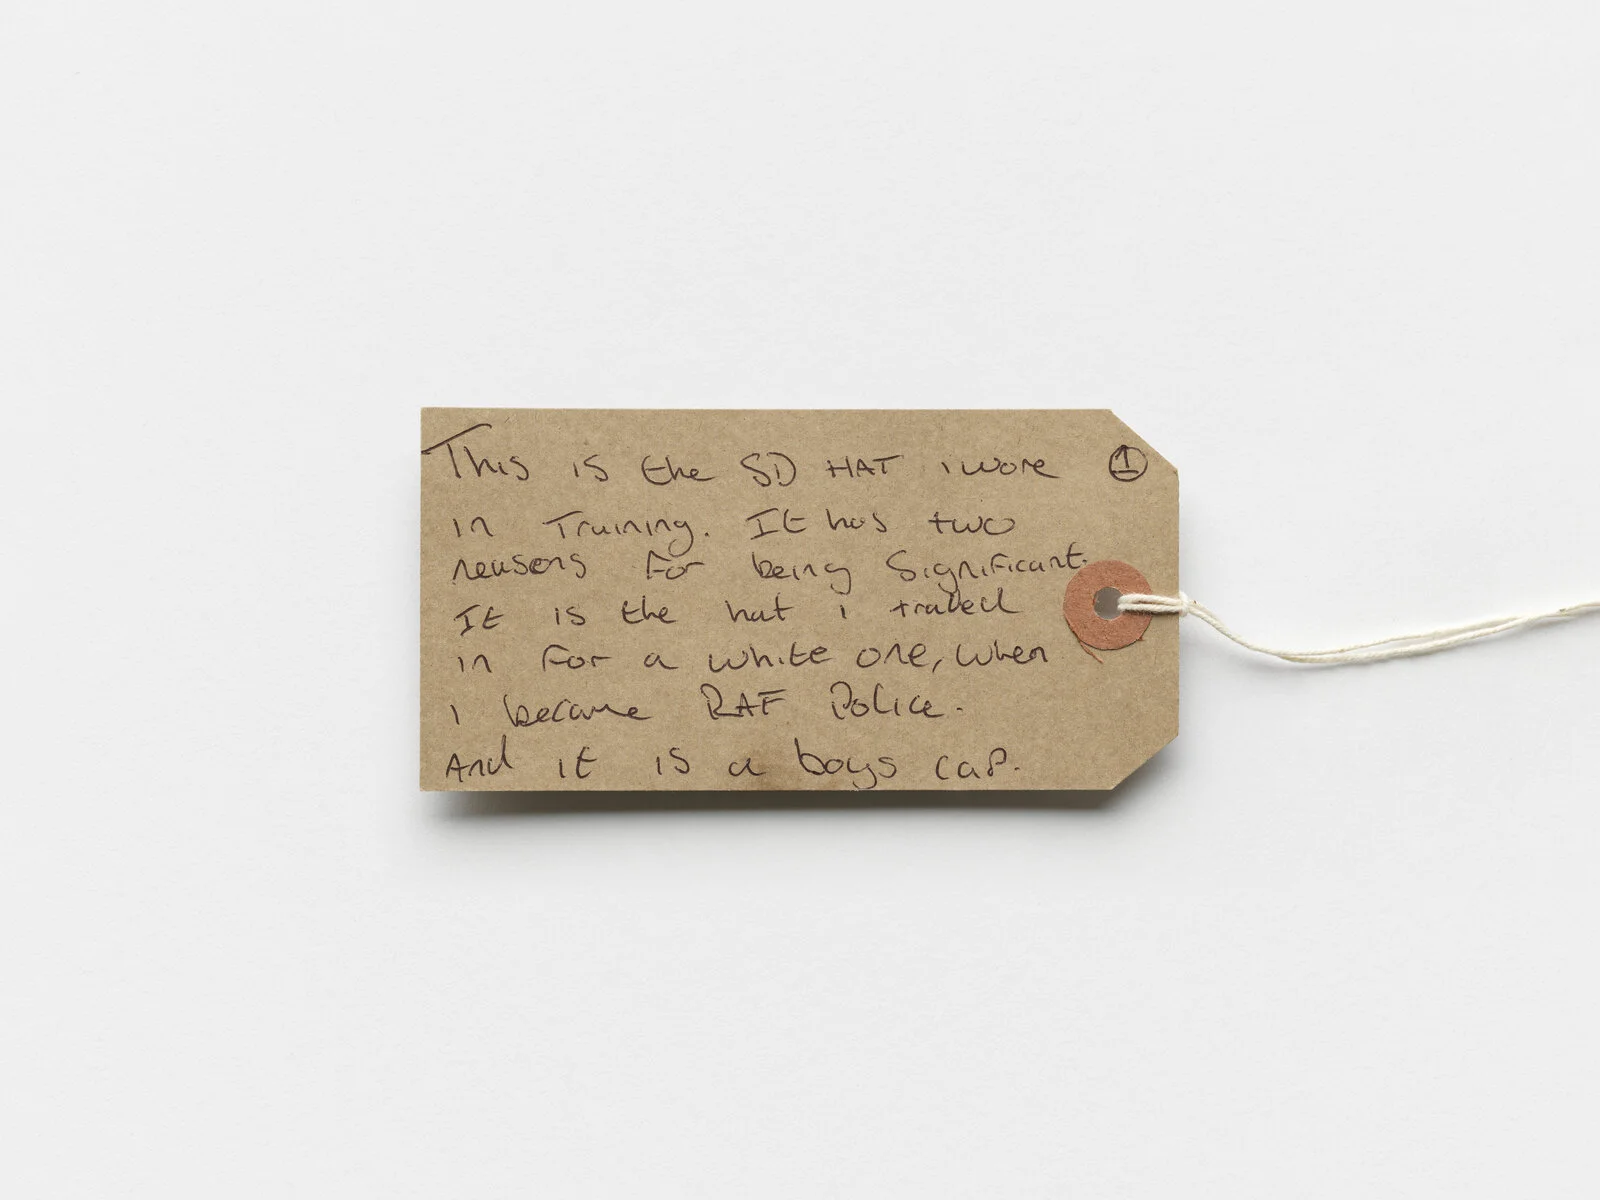 This is the SD HAT i wore ①
in Training. It has two
reasons for being Significant.
It is the hat i traded
in for a white one, when
i became RAF Police.
And it is a boys cap.